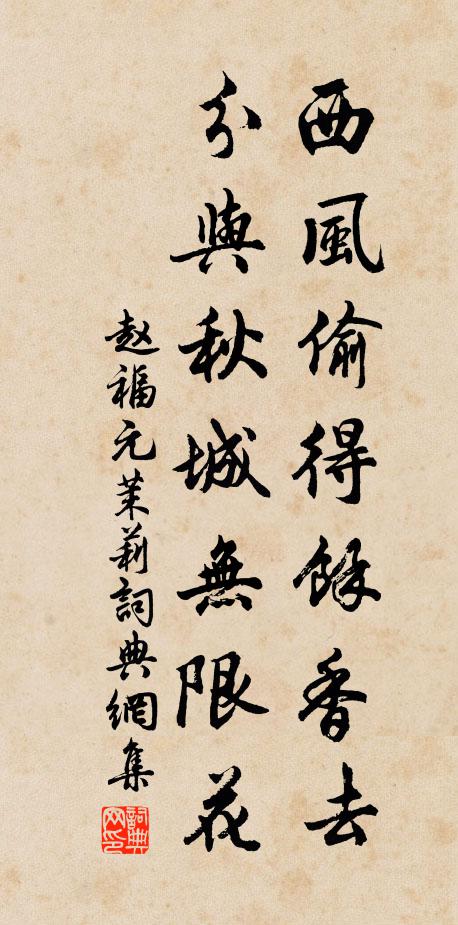 西風偷得餘香去
分與秋城無限花
赵福元茉莉詞典網集
詞典網印